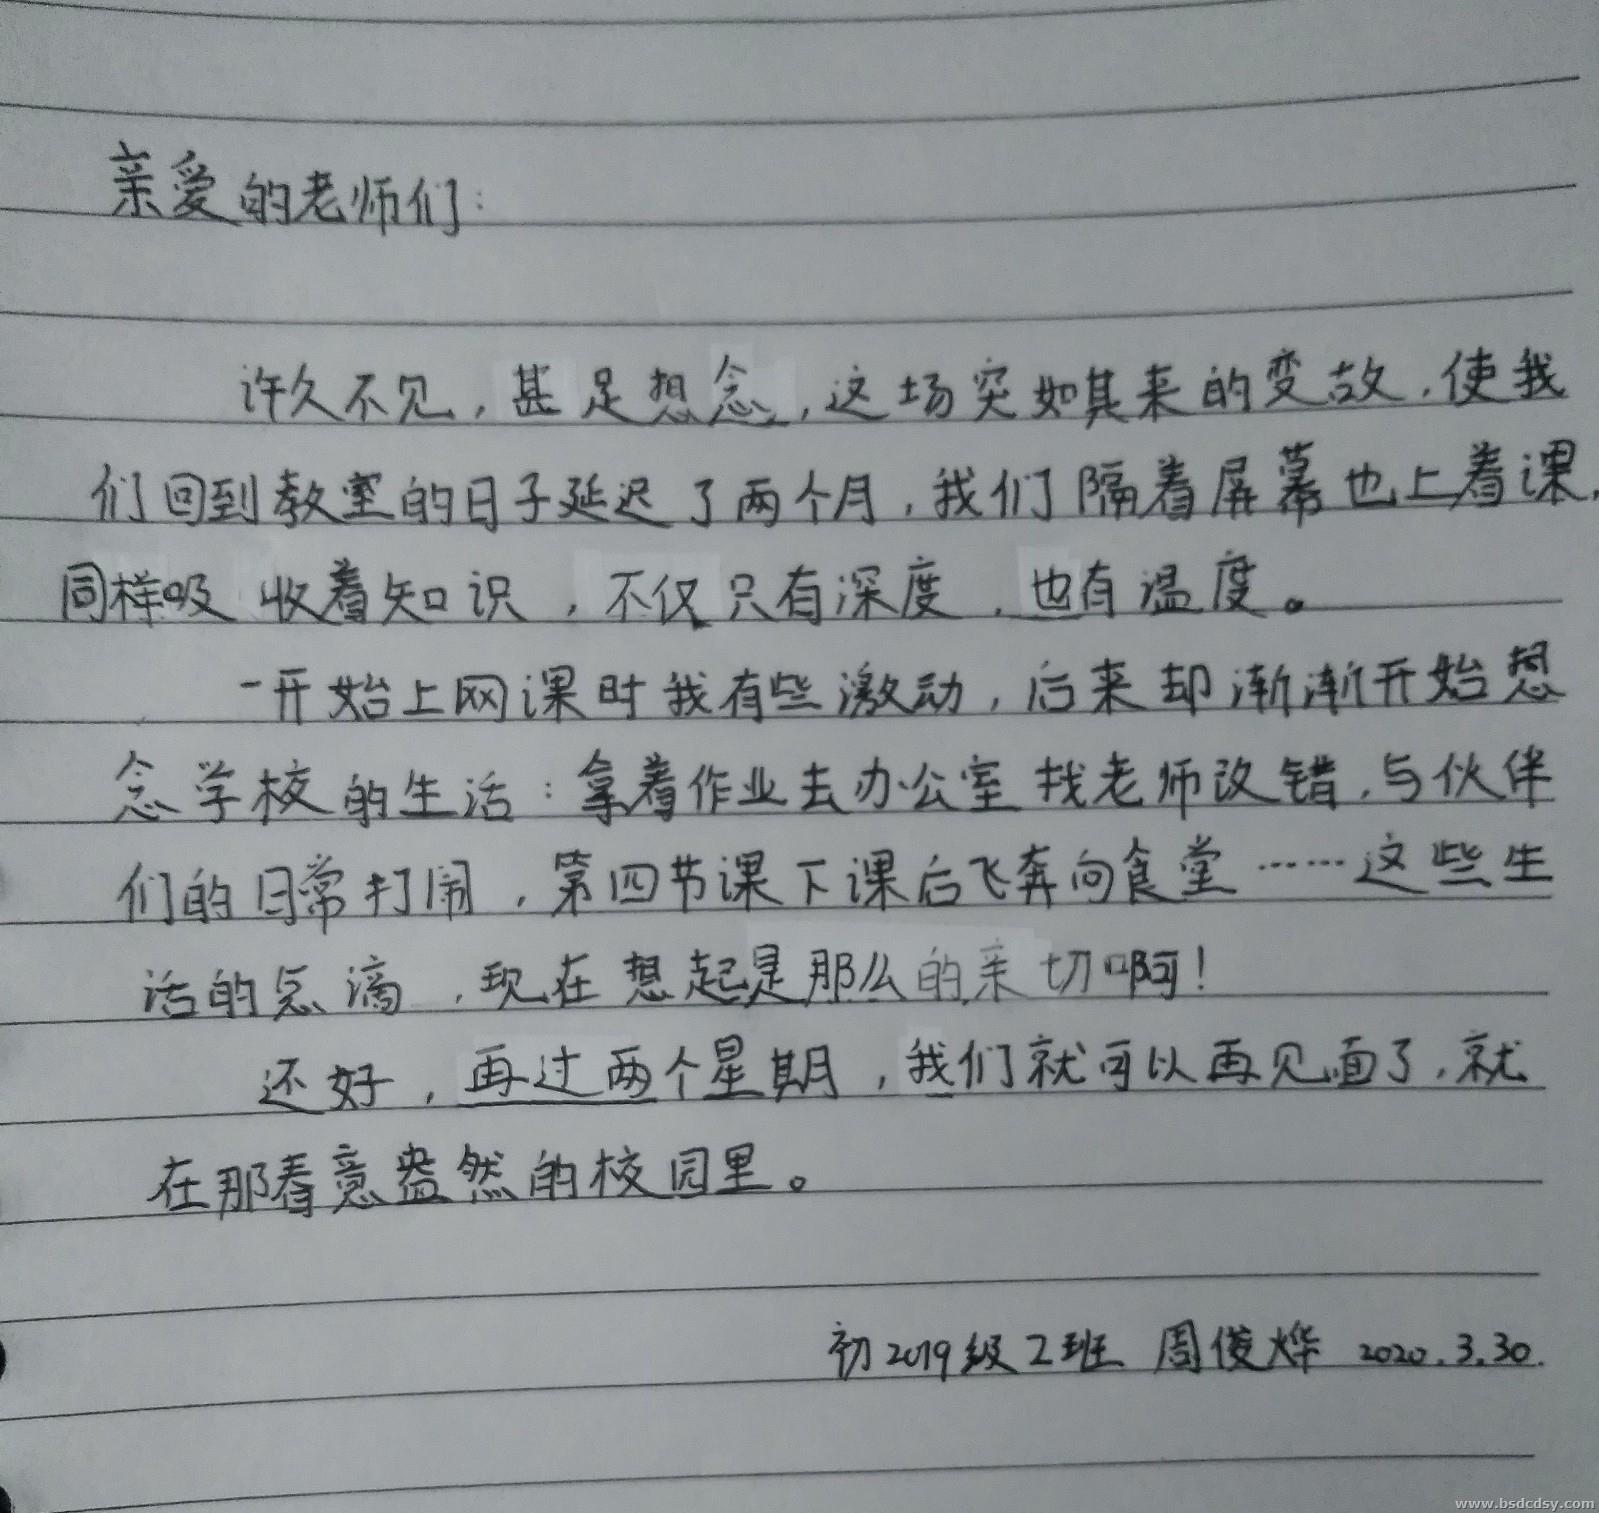 亲爱的老师们:
许久不见，甚是想念，这场突如其来的变故，使我
们回到教室的日子延迟了两个月，我们隔着屏幕也上着课，
同样吸收着知识，不仅只有深度，也有温度。
一开始上网课时我有些激动，后来却渐渐开始想
念学校的生活：拿着作业去办公室找老师改错，与伙伴
们的日常打闹，第四节课下课后飞奔向食堂……这些生
活的点滴，现在想起是那么的亲切啊！
还好，再过两个星期，我们就可以再见面了，就
在那春意盎然的校园里。
初2019级2班 周俊烨 2020.3.30.
www.bsdcdsy.com